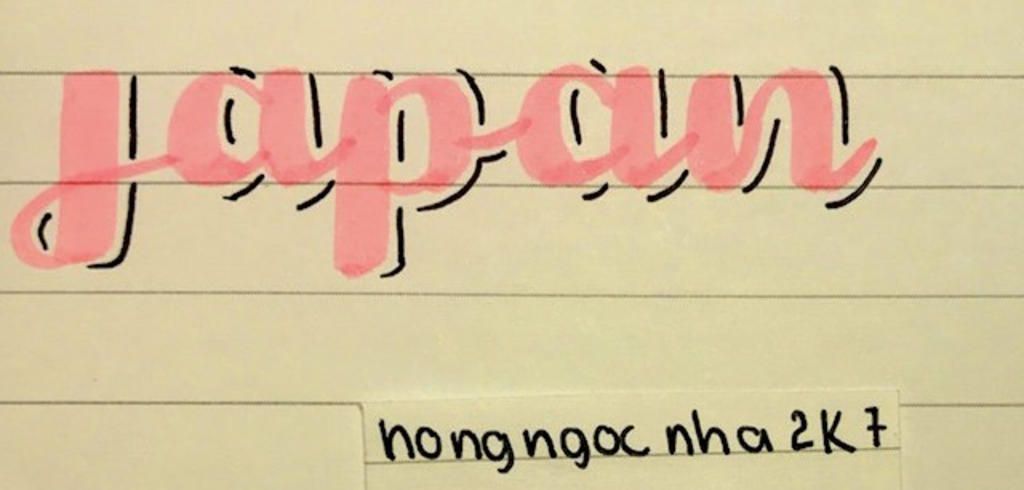 japan
hongngoc nha 2K7